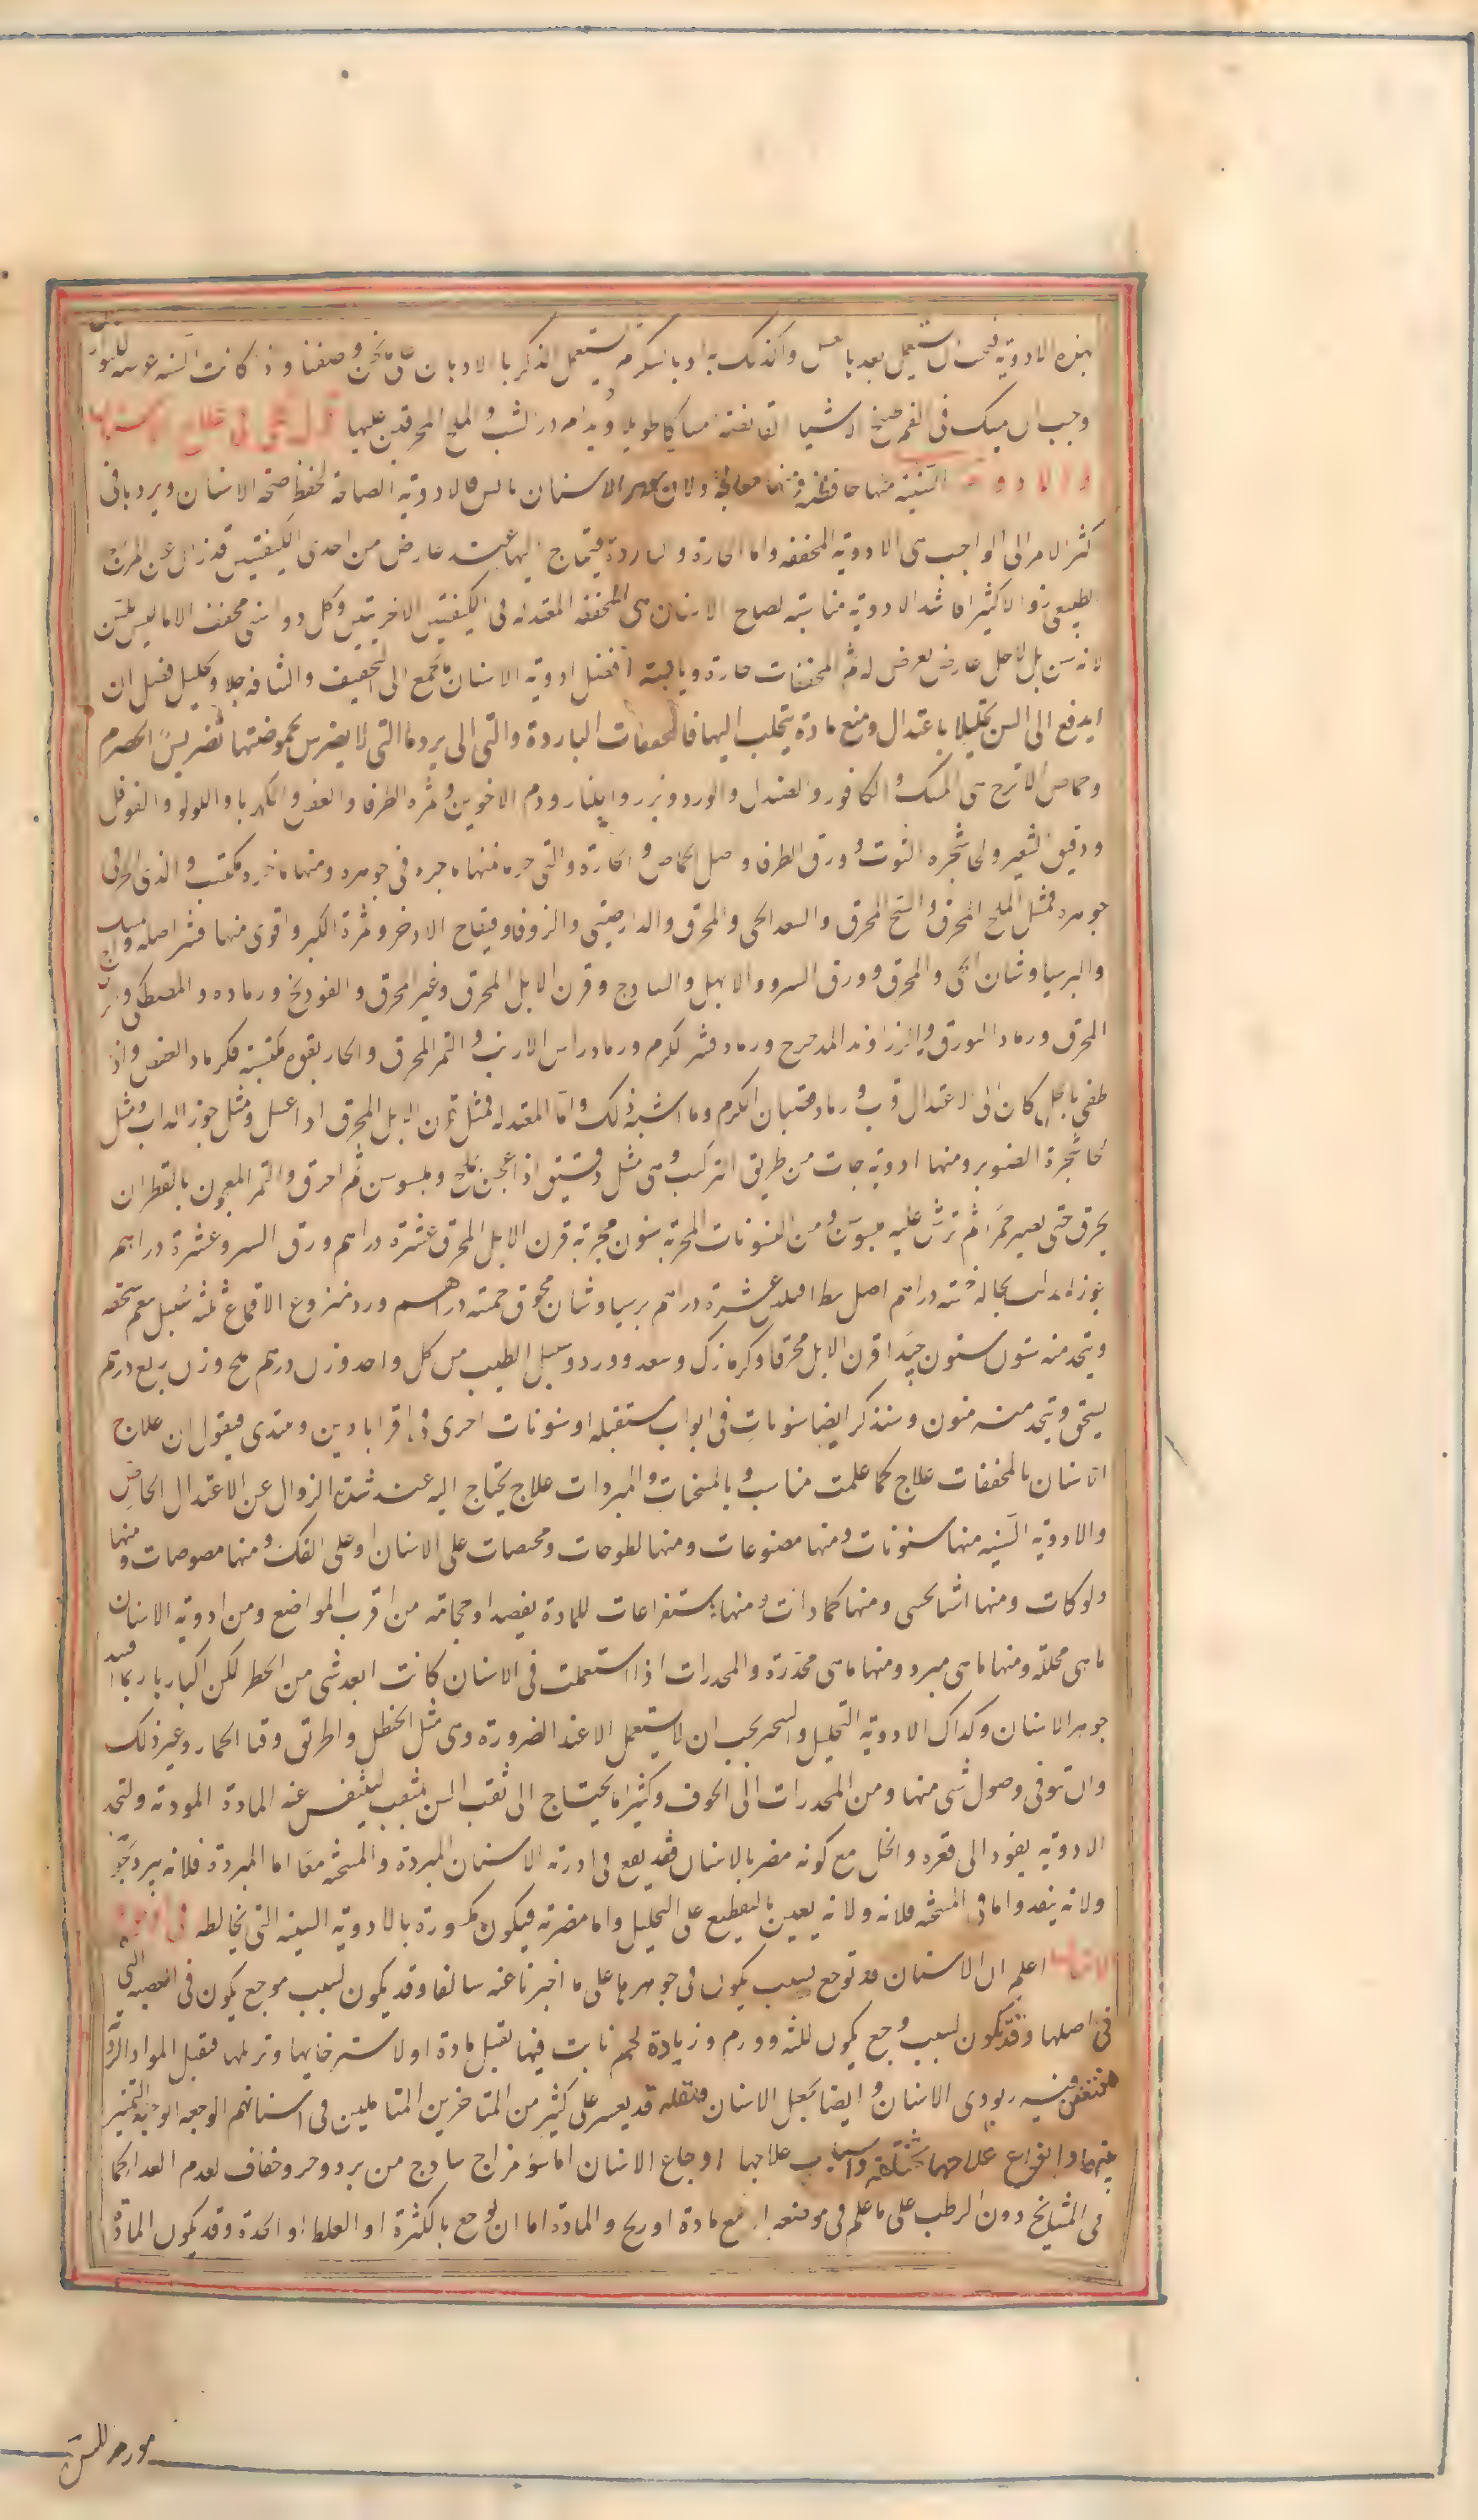 بهذه الادوية فيجب ان يستعمل بعد بالعسل وكذلك به او بالسكر ثم يستعمل الذكر بالادهان وصفنا واذا كانت السنه عرضه للنوازل
وجب ان يمسك فى الفم طبيخ الاشيا القابضة امساكا طويلا ويدام ذر الشب والملح المحرقين عليها
والادوية السنية منها حافظة ومنها معالجة ولان جوهر الاسنان يابس فالادوية الصالحة لحفظ صحة الاسنان وبردها فى
اكثر الامر الى الواجب هى الادوية المجففه واما الحارة والباردة فيحتاج اليها عند عارض من احدى الكيفيتين قد زال عن المزاج
الطبيعى زوالا كثيرا فاشد الادوية مناسبة لصلاح الاسنان هى المجففه المعتدله فى الكيفيتين الاخريتين وكل دوا سنى مجفف اما ليس للسن
لانه سن بل لاجل عارض يعرض له ثم المجففات حارة ويابسة افضل ادوية الاسنان ما يجمع الى التجفيف والنشافه جلا وتحليل فضل ان
اندفع الى السن تحليلا باعتدال ومنع مادة يتحلب اليها فالمجففات الباردة والتى الى برد ما التى لا يضرس بحموضتها تضريس الحصرم
وحماض الاترج هى المسك والكافور والصندل والورد وبزره والجلنار ودم الاخوين وثمره الطرفا والعفص والكهربا واللولو والفوفل
ودقيق الشعير ولحا شجره التوت وورق الطرفا واصل الحماض والحارة والتى حره فمنها ما حره فى جوهره ومنها ما حره مكتسب والذى الحر فى
جوهره فمثل الملح المحرق والشيح المحرق والسعد الحى والمحرق والدارصينى والزوفا وفقاح الاذخر وثمرة الكبر واقوى منها قشر اصله والمسك
والبرسياوشان الحى والمحرق وورق السرو والابهل والساذج وقرن الايل المحرق وغير المحرق والفودنج ورماده والمصطكى
المحرق ورماد البورق والزراوند المدحرج ورماد قشر الكرم ورماد راس الارنب والتمر المحرق والحار بقوه مكتسبة فكرماد العفص واذا
طفى بالخل كان الى الاعتدال اقرب ورماد قضبان الكرم وما اشبه ذلك واما المعتدله فمثل قرن الايل المحرق اذا غسل ومثل جوز الدلب ومثل
لحا شجرة الصنوبر ومنها ادوية جات من طريق التركيب وهى مثل دقيق اذا عجن بملح وميسوسن ثم احرق والتمر المعجون بالقطران
يحرق حتى يصير جمرا ثم ترش عليه ميسوسن ومن السنونات المجربة سنون مجربة قرن الايل المحرق عشرة دراهم ورق السرو عشرة دراهم
جوز الدلب بحاله خمسة دراهم اصل عشرة دراهم برسياوشان محرق خمسة دراهم ورد منزوع الاقماع ثلثة سنبل ينعم سحقه
ويتخذ منه سنون سنون جيد اقرن الايل محرقا وكزمازك وسعد وورد وسنبل الطيب من كل واحد وزن درهم ملح وزن ربع درهم
يسحق ويتخذ منه سنون وسنذكر ايضا سنونات فى ابواب مستقبله او سنونات اخرى فى اقراباذين ونبتدى فيقول ان علاج
الاسنان بالمجففات علاج كما علمت مناسب وبالمسخنات والمبردات علاج يحتاج اليه عند شدة الزوال عن الاعتدال الخاص
والادوية السنيه منها سنونات ومنها مضمضات ومنها لطوخات ومحصات على الاسنان او على الفك ومنها مصوصات ومنها
دلوكات ومنها اشيا تحشى ومنها كمادات ومنها استفراعات للمادة بفصد او حجامة من اقرب المواضع ومن ادوية الاسنان
ما هى محللة ومنها ما هى مبرد ومنها ما هى مخدرة والمخدرات اذا استعملت فى الاسنان كانت ابعد شى من الخطر لكن اكبارها ربما افسد
جوهر الاسنان وكذلك الادوية التحليل والسخن يجب ان لا يستعمل الا عند الضرورة وهى مثل الحنظل والخربق وقثا الحمار وغير ذلك
وان توقى وصول شى منها ومن المخدرات الى الجوف وكثيرا ما يحتاج الى ثقب السن بمثقب ليتنفس عنه المادة المودية ولتجد
الادوية نفوذا الى قعره والخل مع كونه مضر بالاسنان فقد يقع فى ادوية الاسنان المبردة والمسخنة معا اما المبردة فلانه يبرد
ولانه ينفذ واما فى المسخنة فلانه ولانه يعين بالتقطيع على التحليل واما مضرته فيكون مكسورة بالادوية السنية التى يخالطه
اعلم ان الاسنان قد توجع لسبب يكون فى جوهرها على ما اخبرنا عنه سالفا وقد يكون لسبب موجع يكون فى العصبه التى
فى اصلها وقد يكون لسبب وجع يكون للثه وورم وزيادة لحم نابت فيها يقبل مادة او لاسترخايها وترهلها فيقبل المواد الردية
فيتعفن فيه ويوذى الاسنان وايضا يجعل الاسنان قلقله وقد يعسر على كثير من المتاخرين المتاملين فى اسنانهم الوجعه الوجيه التمييز
بينها وانواع علاجها مختلفه واسباب علاجها اوجاع الاسنان اما سو مزاج ساذج من برد وحر وجفاف لعدم الغدا كما
فى المشايخ دون الرطب على ما علم فى موضعه او مع مادة او ريح والمادة اما ان توجع بالكثرة او الغلظ او الحدة وقد يكون المادة
مورمه للسن